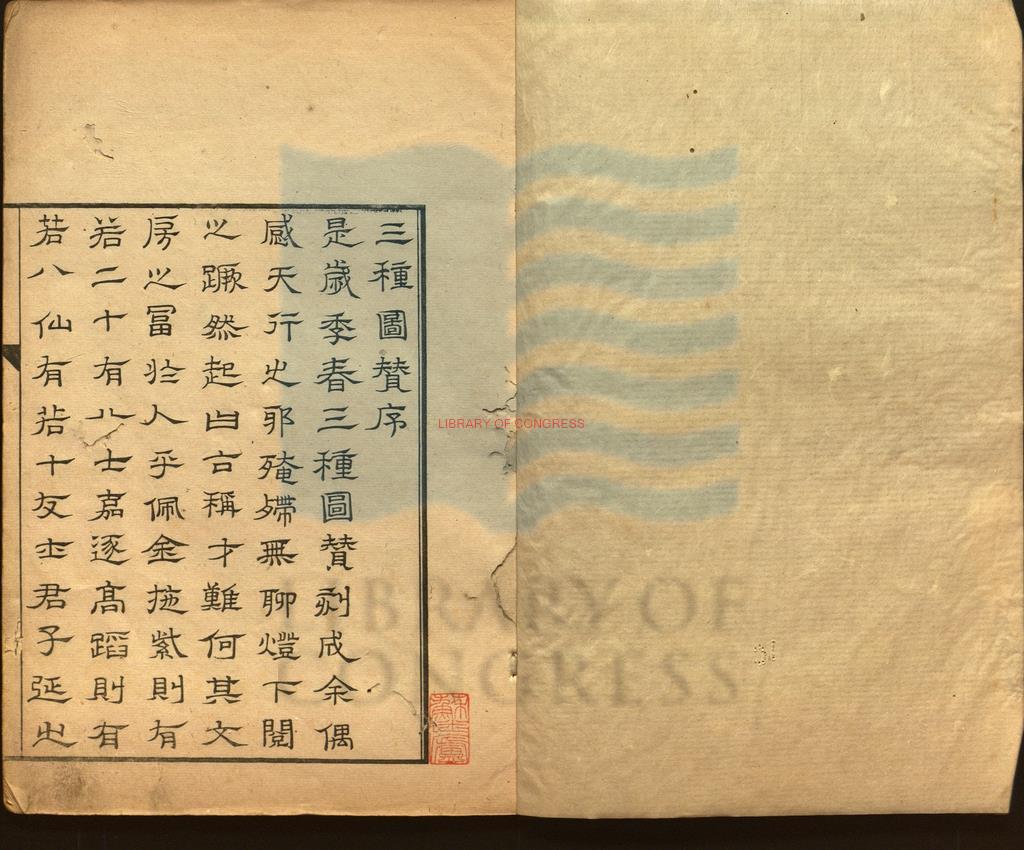 三種圖贊序
是歲季春三種圖贊刻成余偶
感天行之耶殗殢無聊燈下閱
之蹶然起曰古稱才難何其文
房之富於人乎佩金拖紫則有
若二十有八士嘉遂高蹈則有
若八仙有若十友士君子延之
LIBRARY OF CONGRESS
LIBRARY OF
CONGRESS